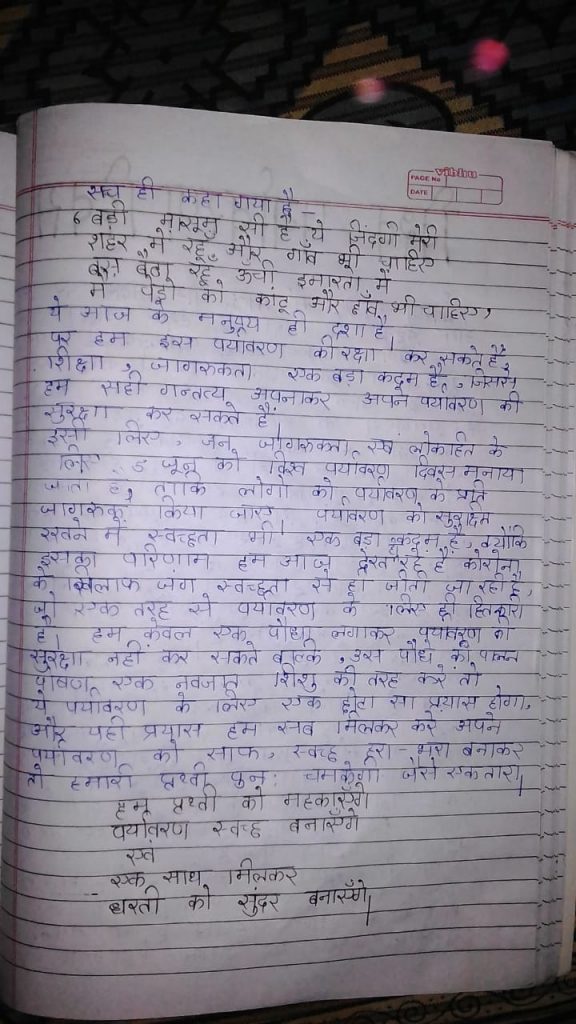 vibhu
PAGE No
DATE
सच ही कहा गया है –
"बड़ी मासूम सी है ये जिंदगी मेरी
शहर में रहूँ और गाँव भी चाहिए
बस बैठा रहूँ ऊंची इमारतो में
में पेड़ो को काटू और छाँव भी चाहिए,
ये आज के मनुष्य ही दशा है।
पर हम इस पर्यावरण की रक्षा कर सकते है,
शिक्षा, जागरुकता एक बड़ा कदम है, जिससे
हम सही गन्तत्य अपनाकर अपने पर्यावरण की
सुरक्षा कर सकते है।
इसी लिए, जन जागरुकता एवं लोकहित के
लिए 5 जून को विश्व पर्यावरण दिवस मनाया
जाता है, ताकि लोगो को पर्यावरण के प्रति
जागरुक किया जाए। पर्यावरण को सुरक्षित
रखने में स्वच्छता भी एक बड़ा कदम है, क्योंकि
इसका परिणाम हम आज देख रहे है कोरोना
के खिलाफ जंग स्वच्छता से ही जीती जा रही है,
जो एक तरह से पर्यावरण के लिए ही हितकारी
है। हम केवल एक पौधा लगाकर पर्यावरण की
सुरक्षा नही कर सकते बल्कि, उस पौधे की पालन
पोषण एक नवजात शिशु की तरह करे तो
ये पर्यावरण के लिए एक छोटा सा प्रयास होगा,
और यही प्रयास हम सब मिलकर करे अपने
पर्यावरण को साफ, स्वच्छ हरा-भरा बनाकर
तो हमारी पृथ्वी पुन: चमकेगी जैसे एक तारा।
हम पृथ्वी को महकाएँगे
पर्यावरण स्वच्छ बनाएँगे
एवं
एक साथ मिलकर
धरती को सुंदर बनाएँगे।